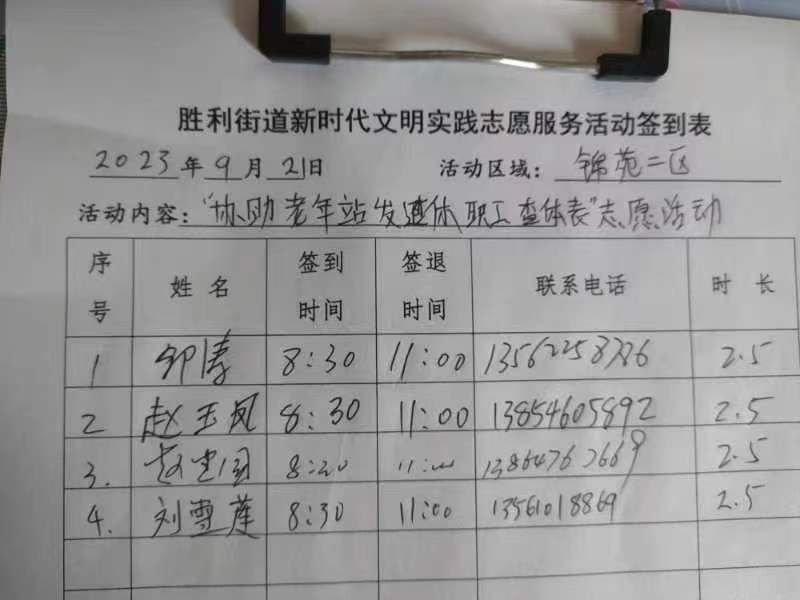 胜利街道新时代文明实践志愿服务活动签到表
2023年9月21日 活动区域：锦苑二区
活动内容："协助老年站发退休职工查体表"志愿活动
序号 姓名 签到时间 签退时间 联系电话 时长
1 8:30 11:00 2.5
2 赵玉凤 8:30 11:00 13854605892 2.5
3. 11:00 2.5
4. 刘雪莲 8:30 11:00 13561018869 2.5